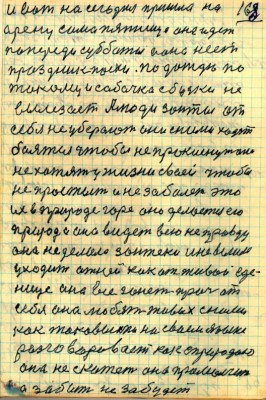 168
и вот на сегодня пришла на
арену сама пятница она идет
попереди субботы она несет
праздник поки. по дождь по
такому и собачка с будки не
вылезает люди зонты от
себя не уберают они сними ходят
боятся чтобы не промокнуть
не хотят у жизни своей чтобы
не простыть и не заболеть это
их в природе горе оно делается ею
природа она видет всю неправду
она не делала зонтека и невелим
уходит от ней как от живой еде-
нице она вне гонет прочь от
себя она любят таких сними
как таковыми на своем языке
разговаривает как с природою
она не скажет она промолчит
а забыть не забудет